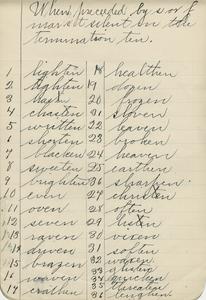 When preceded by s or f
mark t silent in the
termination ten.
1 lighten
2 tighten
3 hasten
4 chasten
5 written
6 shorten
7 blacken
8 sweeten
9 brighten
10 even
11 oven
12 seven
13 raven
14 driven
15 brazen
16 woven
17
18 heathen
19
20 frozen
21 sloven
22 leaven
23 broken
24 heaven
25 earthen
26 sharpen
27 christen
28 often
29
30 vixen
31 soften
32
33
34
35 threaten
36 lengthen